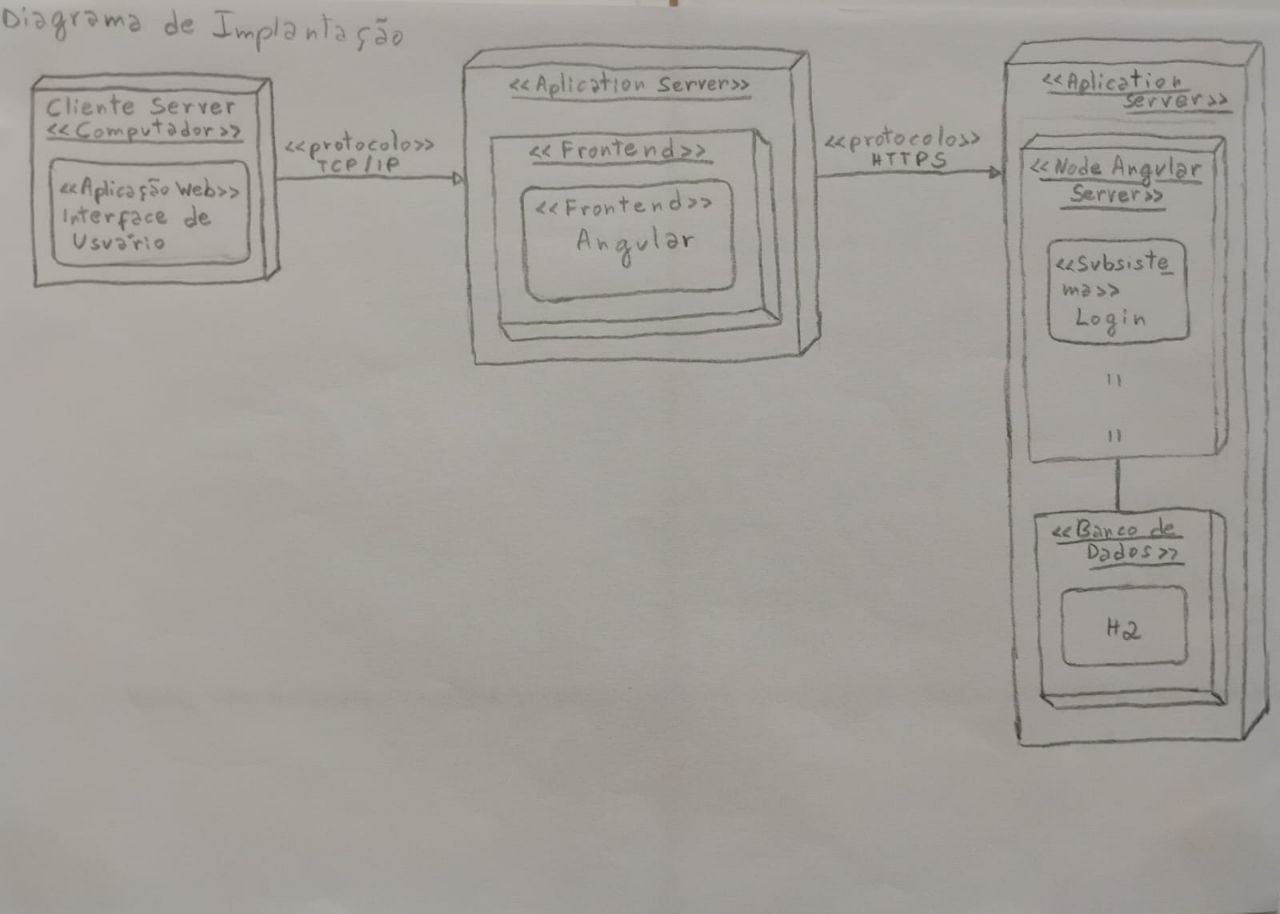 Diagrama de Implantação
Cliente Server
<<Computador>>
<<Aplicação Web>>
Interface de
Usuário
<<protocolo>>
TCP/IP
<<Aplication Server>>
<<Frontend>>
<<Frontend>>
Angular
<<protocolo>>
HTTPS
<<Aplication
Server>>
<<Node Angular
Server>>
<<Subsiste
ma>>
Login
"
"
<<Banco de
Dados>>
H2